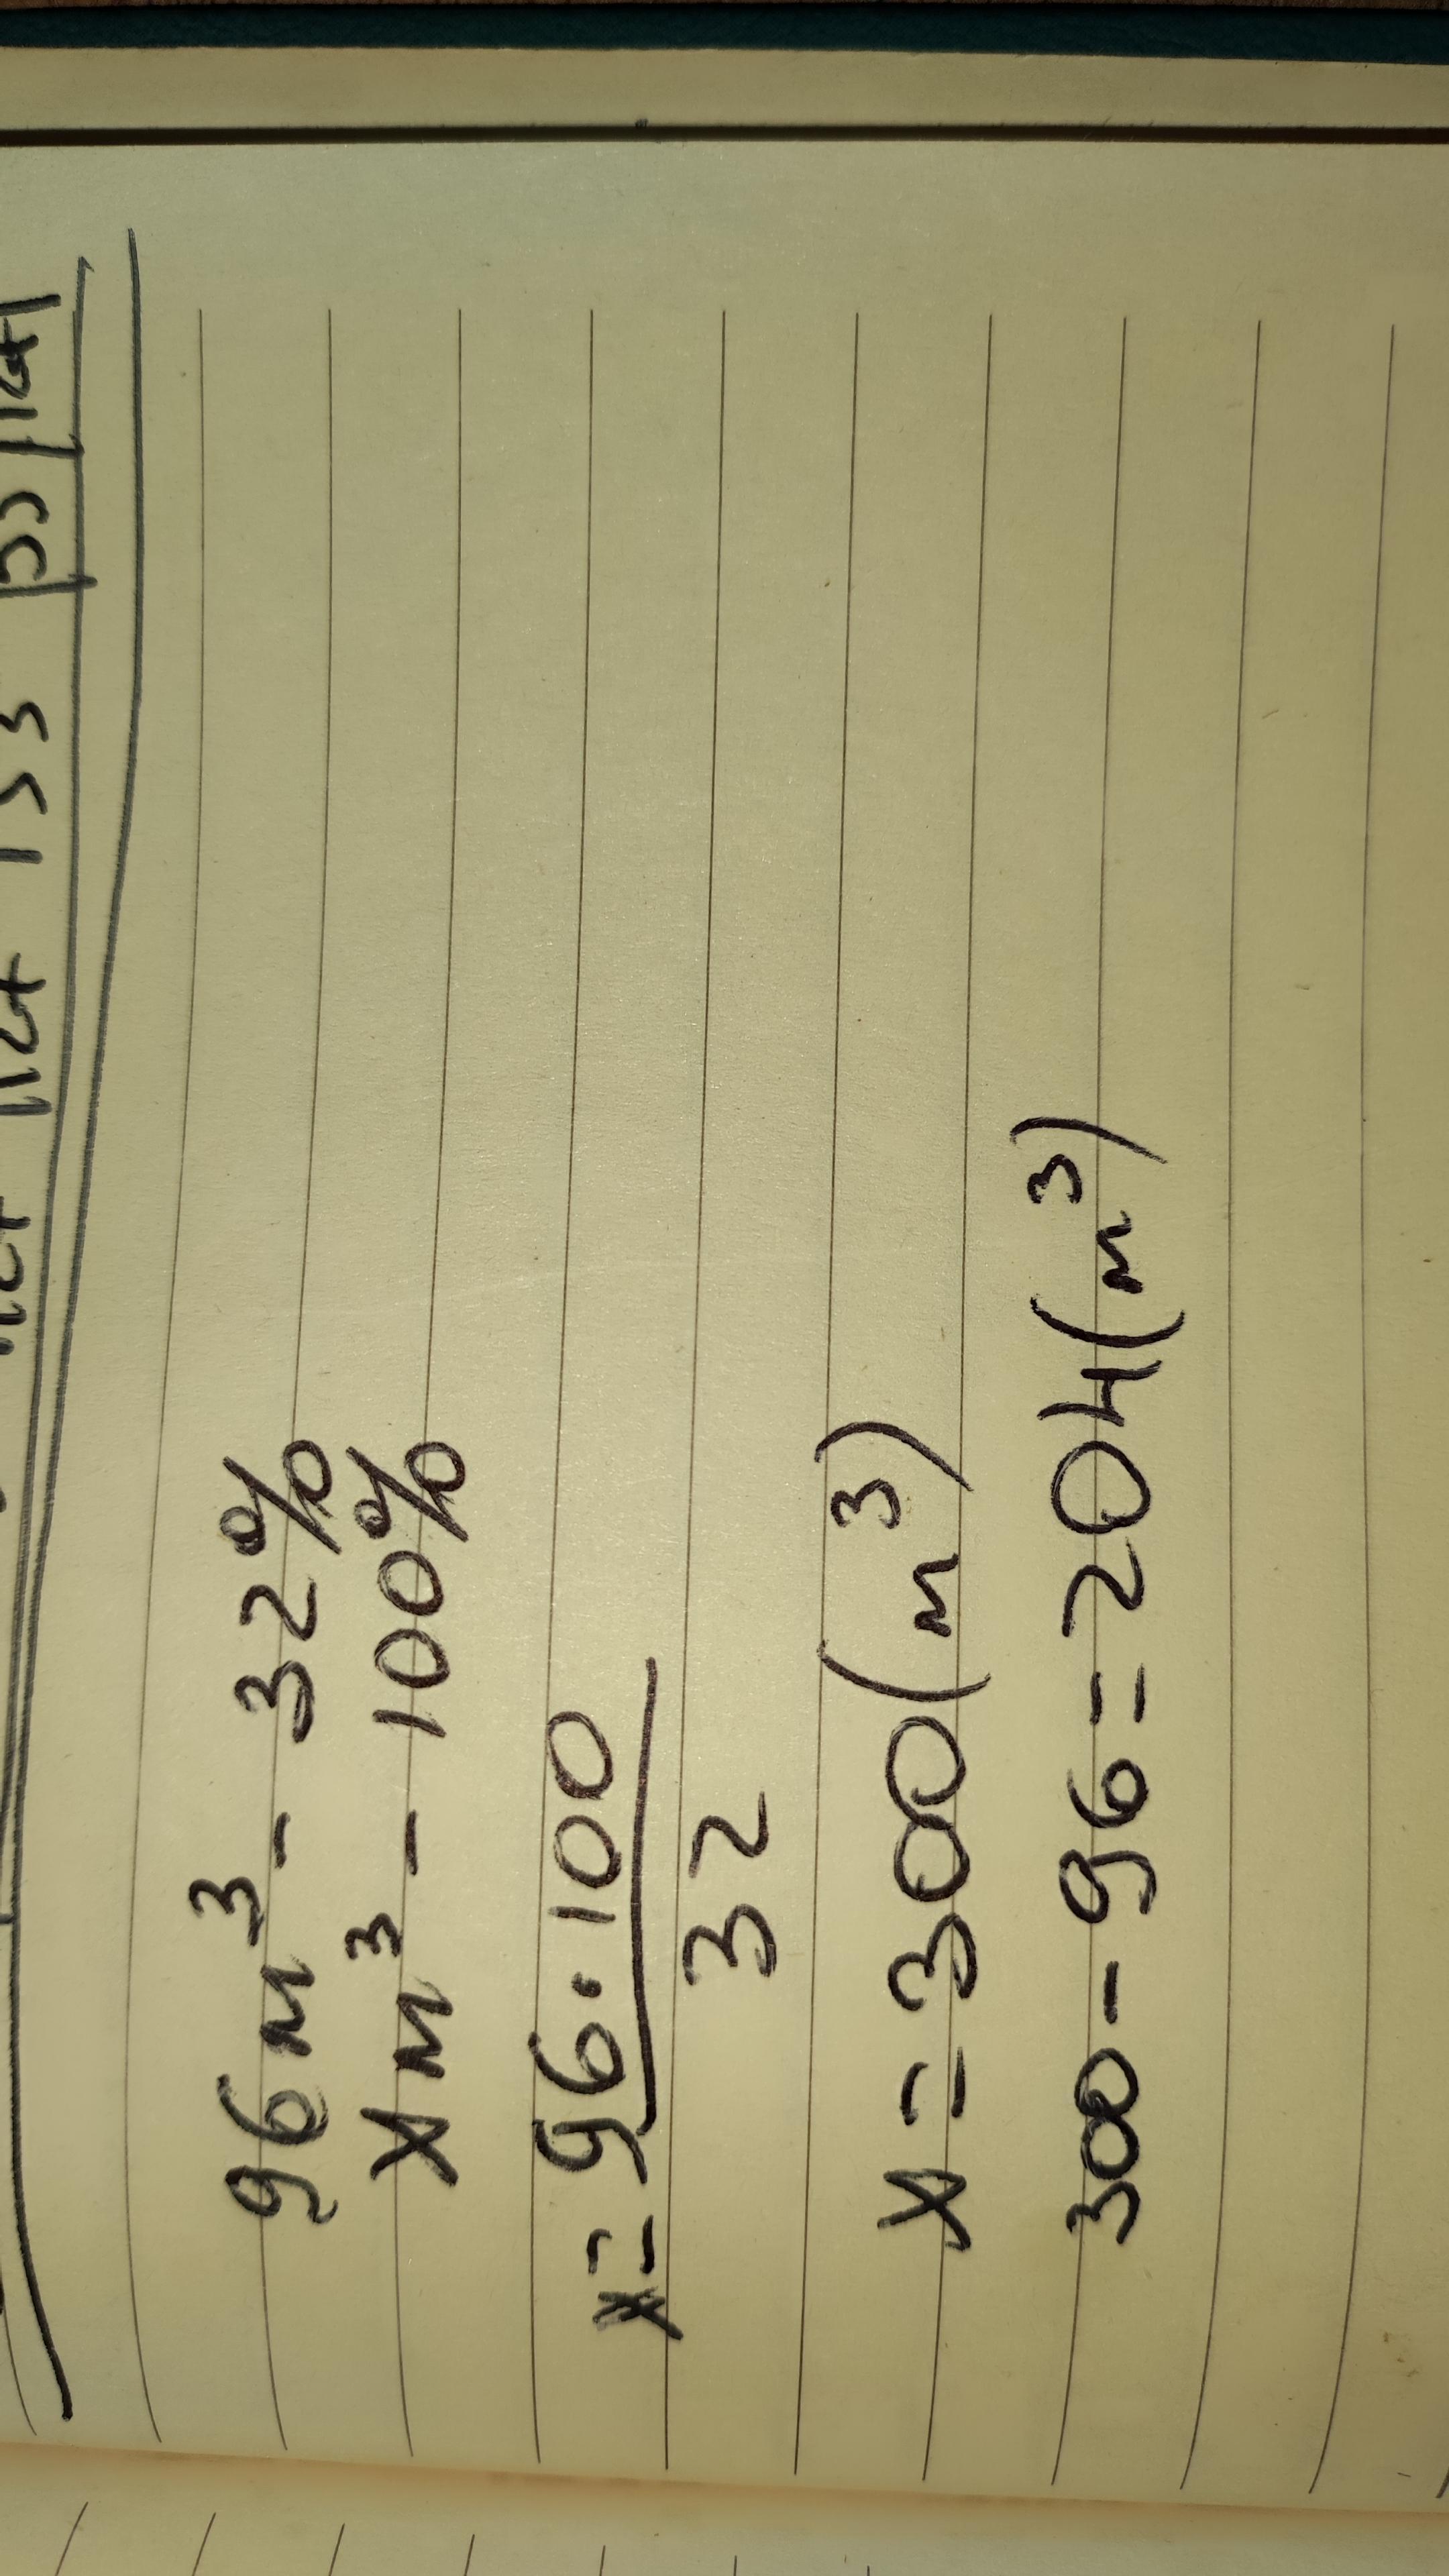 96 м³ - 32%
x м³ - 100%
x = 96 · 100
32
x = 300 (м³)
300 - 96 = 204 (м³)